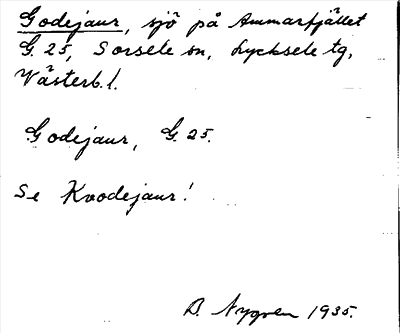 Godejaur, sjö på Ammarfjället
G. 25, Sorsele sn, Lycksele tg,
Västerb. l.
Godejaur, G. 25.
Se Kvodejaur!
B. Nygren 1935.